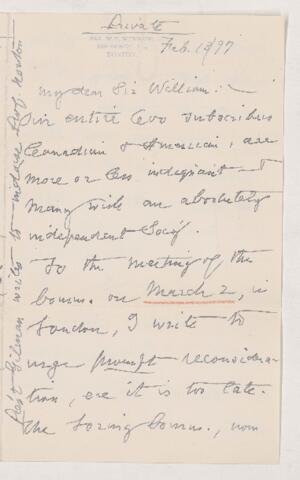 Private
Feb. 1897
My dear Sir William: –
Our entire 600 subscribers
Canadian & American, are
more or less indignant &
many wish an absolutely
independent Socy.
To the meeting of the
Comm. on March 2, in
London, I write to
urge prompt reconsidera-
tion, ere it is too late.
The Comm., now
Pres't Gilman writes to Prof. Norton